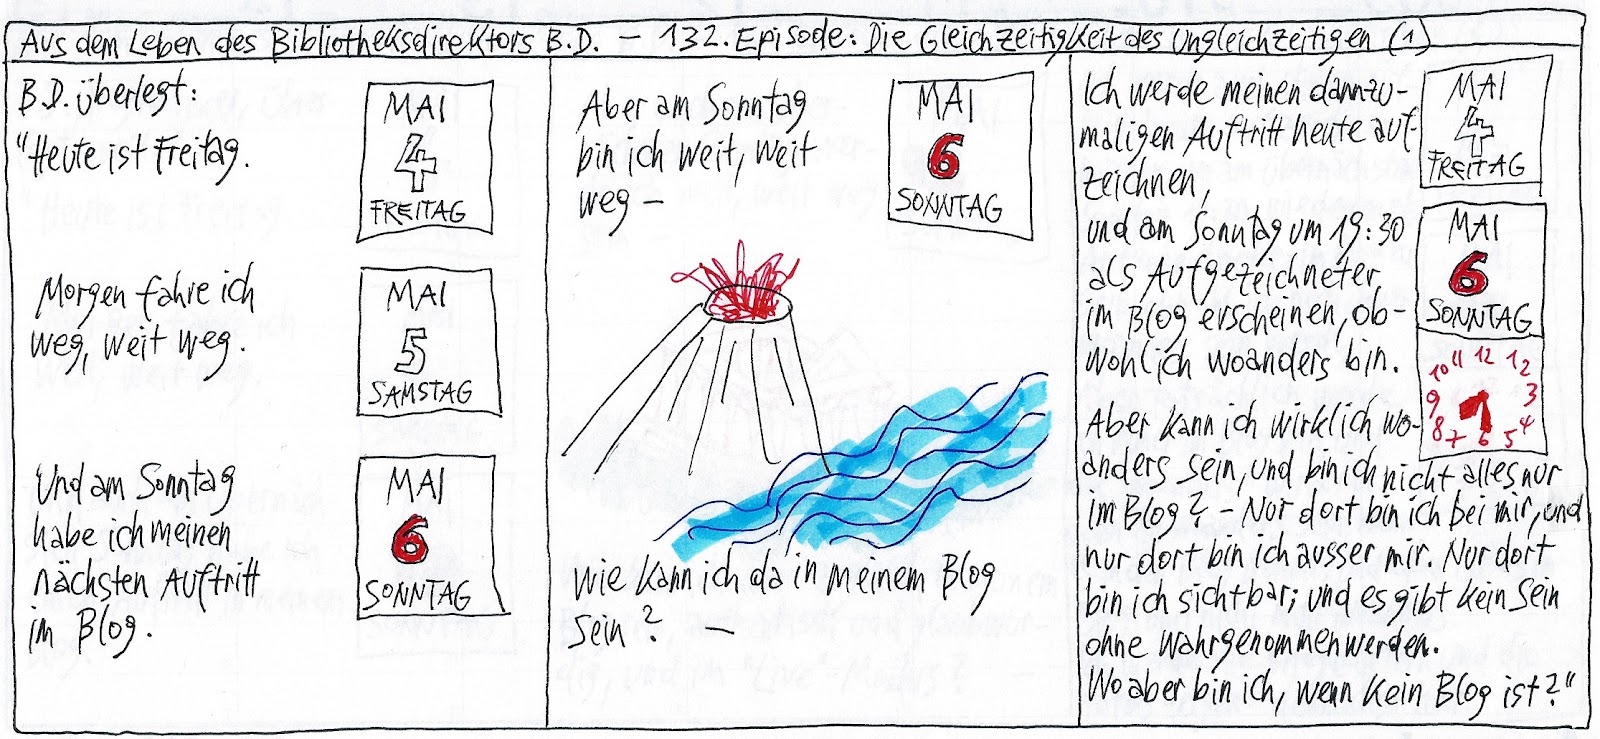 Aus dem Leben des Bibliotheksdirektors B.D. – 132. Episode: Die Gleichzeitigkeit des Ungleichzeitigen (1)
B.D. überlegt:
"Heute ist Freitag.
MAI
4
FREITAG
Morgen fahre ich
weg, weit weg.
MAI
5
SAMSTAG
Und am Sonntag
habe ich meinen
nächsten Auftritt
im Blog.
MAI
6
SONNTAG
Aber am Sonntag
bin ich weit, weit
weg –
MAI
6
SONNTAG
Wie kann ich da in meinem Blog
sein? –
Ich werde meinen dannzu-
maligen Auftritt heute auf-
zeichnen,
MAI
4
FREITAG
und am Sonntag um 19:30
als Aufgezeichneter
im Blog erscheinen, ob-
wohl ich woanders bin.
MAI
6
SONNTAG
12 1 2 3 4 5 6 7 8 9 10 11
Aber kann ich wirklich wo-
anders sein, und bin ich nicht alles nur
im Blog? – Nur dort bin ich bei mir, und
nur dort bin ich ausser mir. Nur dort
bin ich sichtbar; und es gibt kein Sein
ohne Wahrgenommenwerden.
Wo aber bin ich, wenn kein Blog ist?"